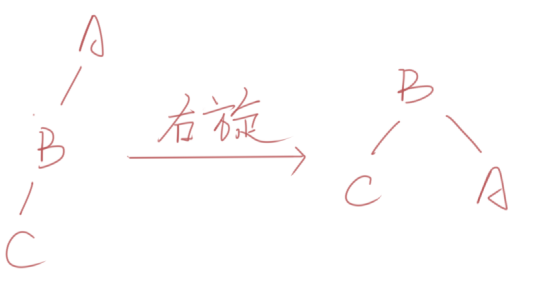 A
B
C
右旋
B
C A